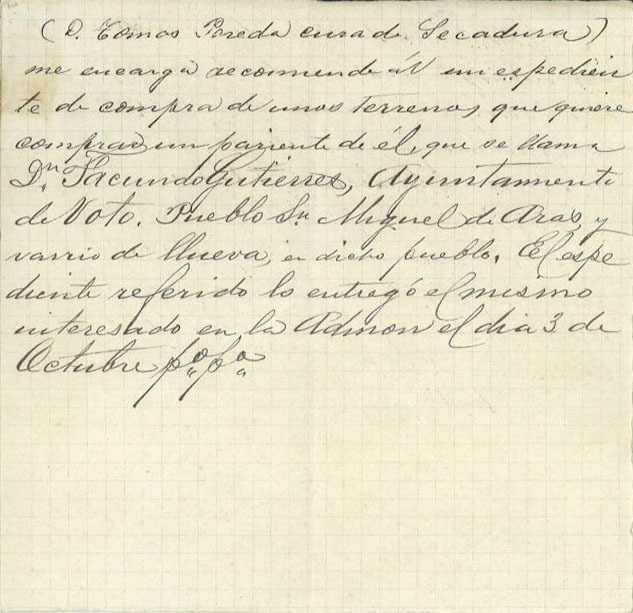 (D. Tomas Pereda cura de Secadura)
me encarga recomiende á V un espedien
te de compra de unos terrenos, que quiere
comprar un pariente de él, que se llama
Dn. Facundo Gutierres, Ayuntamiento
de Voto. Pueblo Sn Miguel de Aras, y
varrio de Llueva, en dicho pueblo. El espe
diente referido lo entregó el mismo
interesado en la Admon el dia 3 de
Octubre po. po.